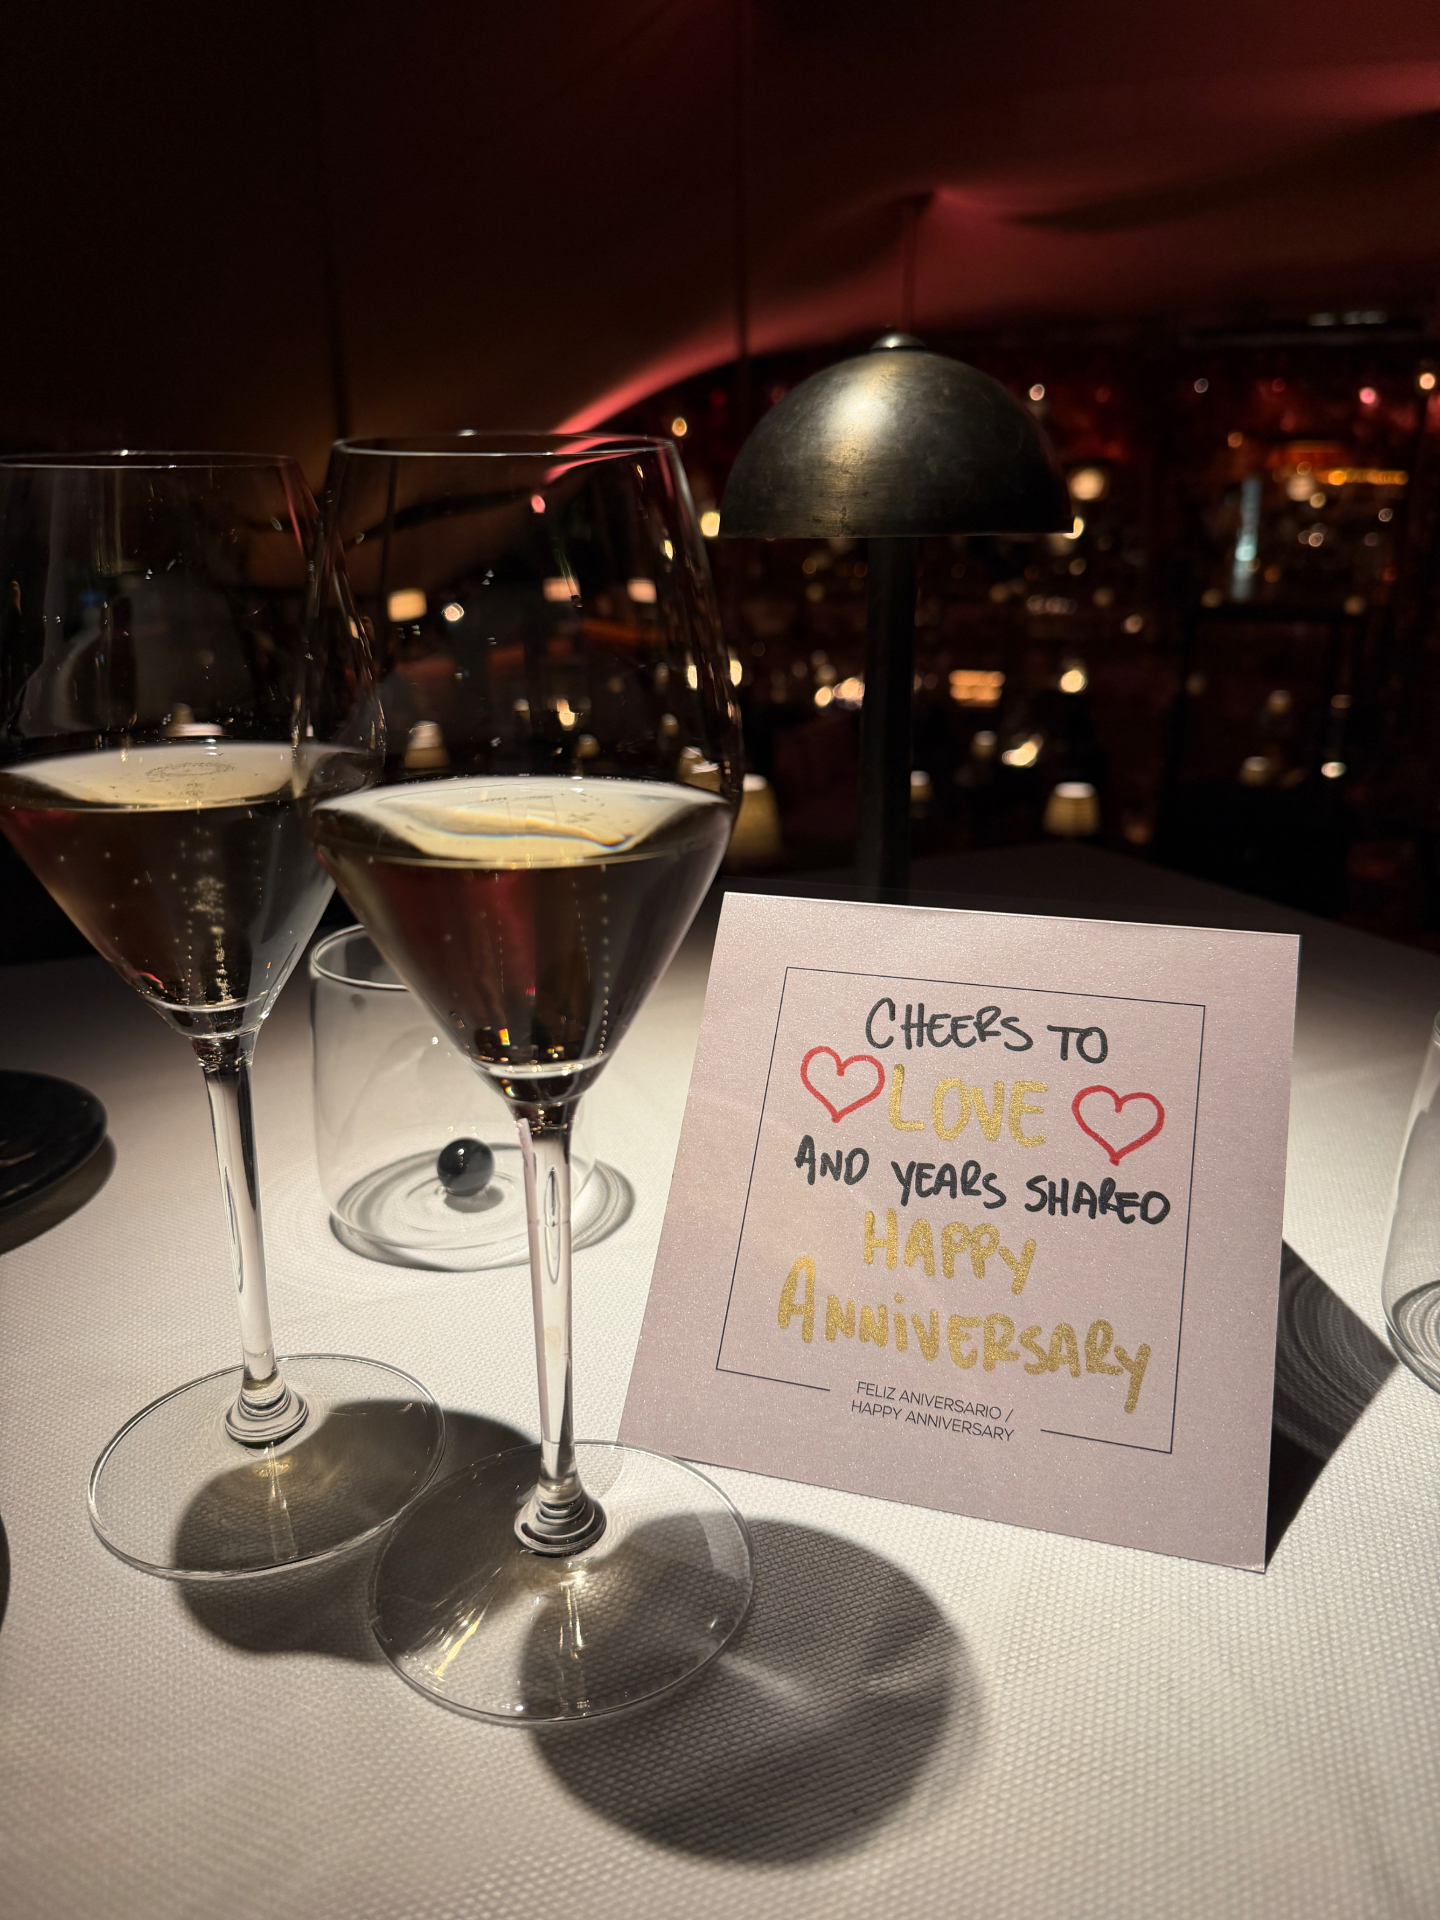 CHEERS TO
LOVE
AND YEARS SHARED
HAPPY
ANNiVERSARY
FELIZ ANIVERSARIO /
HAPPY ANNIVERSARY